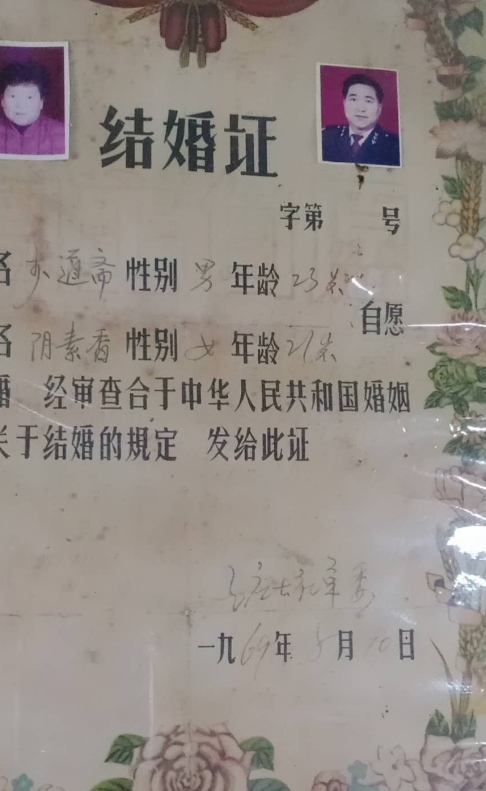 结婚证
字第 号
名 道斋 性别 男 年龄 23岁
自愿
名 阴素香 性别 女 年龄 21岁
婚 经审查合于中华人民共和国婚姻
关于结婚的规定 发给此证
一九69年 月10日